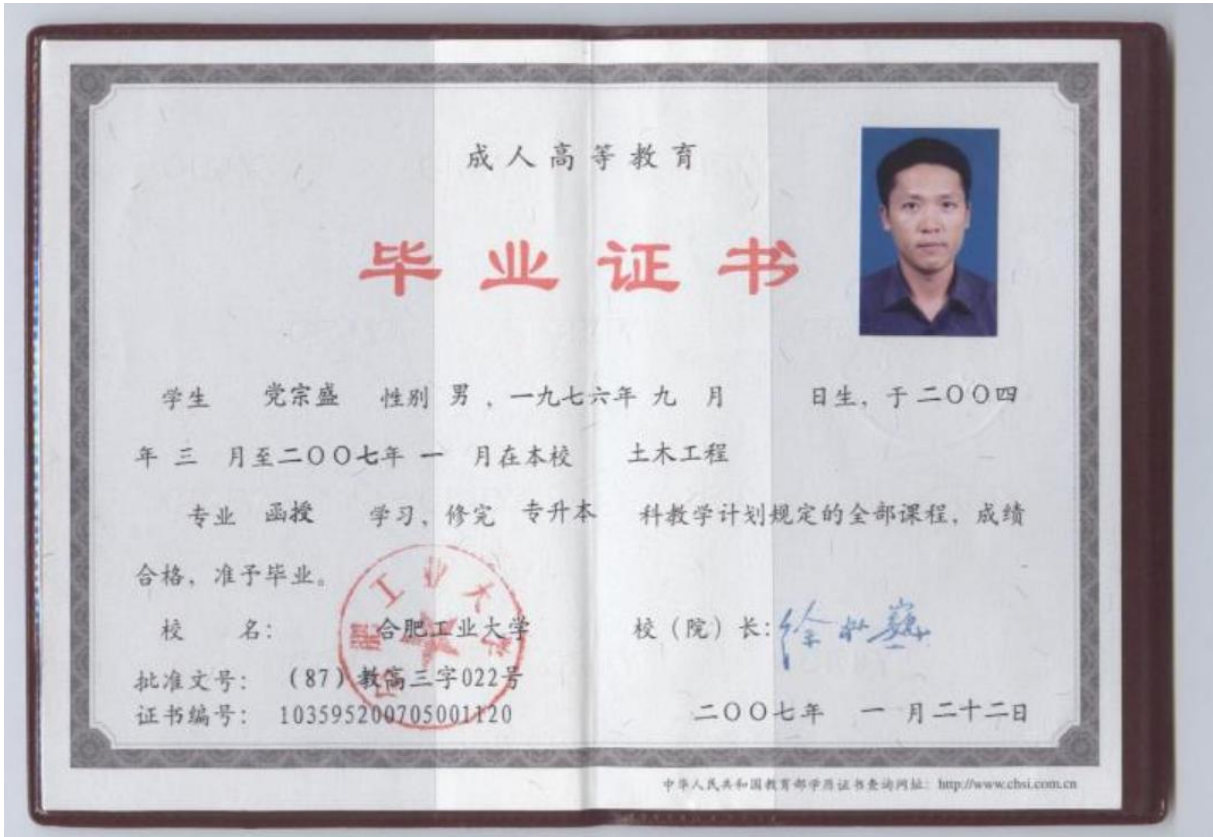 成人高等教育
毕业证书
学生 党宗盛 性别 男 ，一九七六年 九 月 日生，于二〇〇四
年 三 月至二〇〇七年 一 月在本校 土木工程
专业 函授 学习，修完 专升本 科教学计划规定的全部课程，成绩
合格，准予毕业。
校 名： 合肥工业大学 校（院）长：
批准文号： (87)教高三字022号
证书编号： 103595200705001120 二〇〇七年 一 月二十二日
中华人民共和国教育部学历证书查询网址：http://www.chsi.com.cn